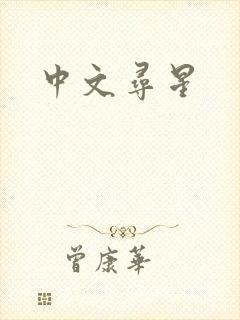 中文尋星
曾康華